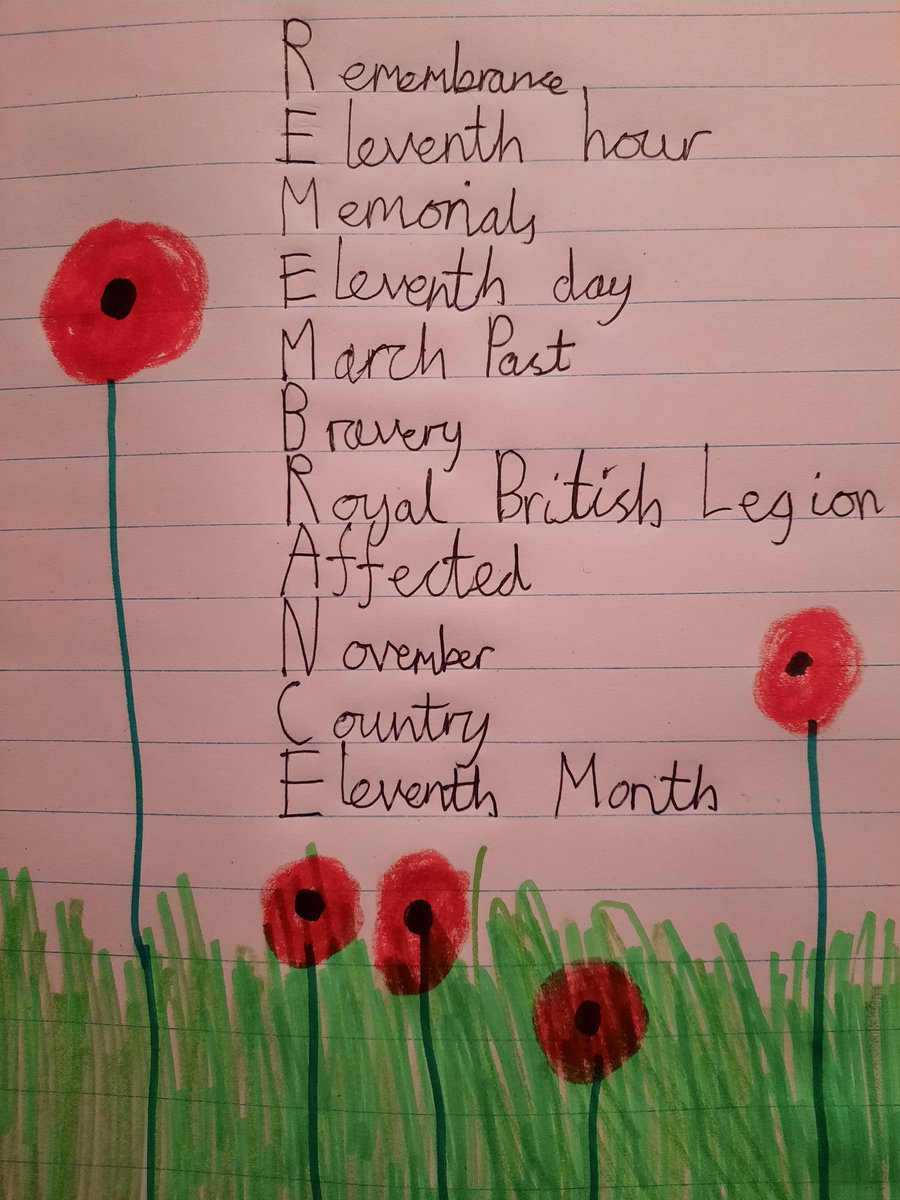 Remembrance
Eleventh hour
Memorials
Eleventh day
March Past
Bravery
Royal British Legion
Affected
November
Country
Eleventh Month